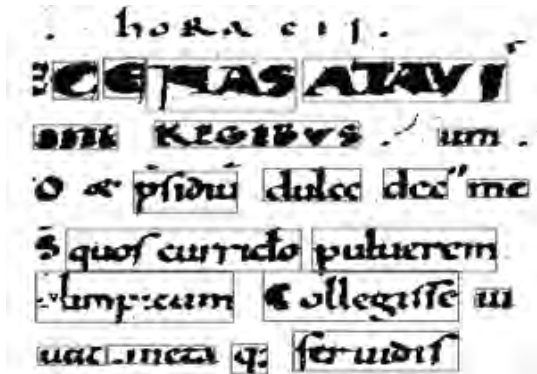 hoRa cij.
CENAS ATAVI
REGIBVS . um .
O & p̄sidiū dulce dec" me
quoſ curriclo puluerem
limpicum Collegiſſe iu
uat meta q: feruidiſ